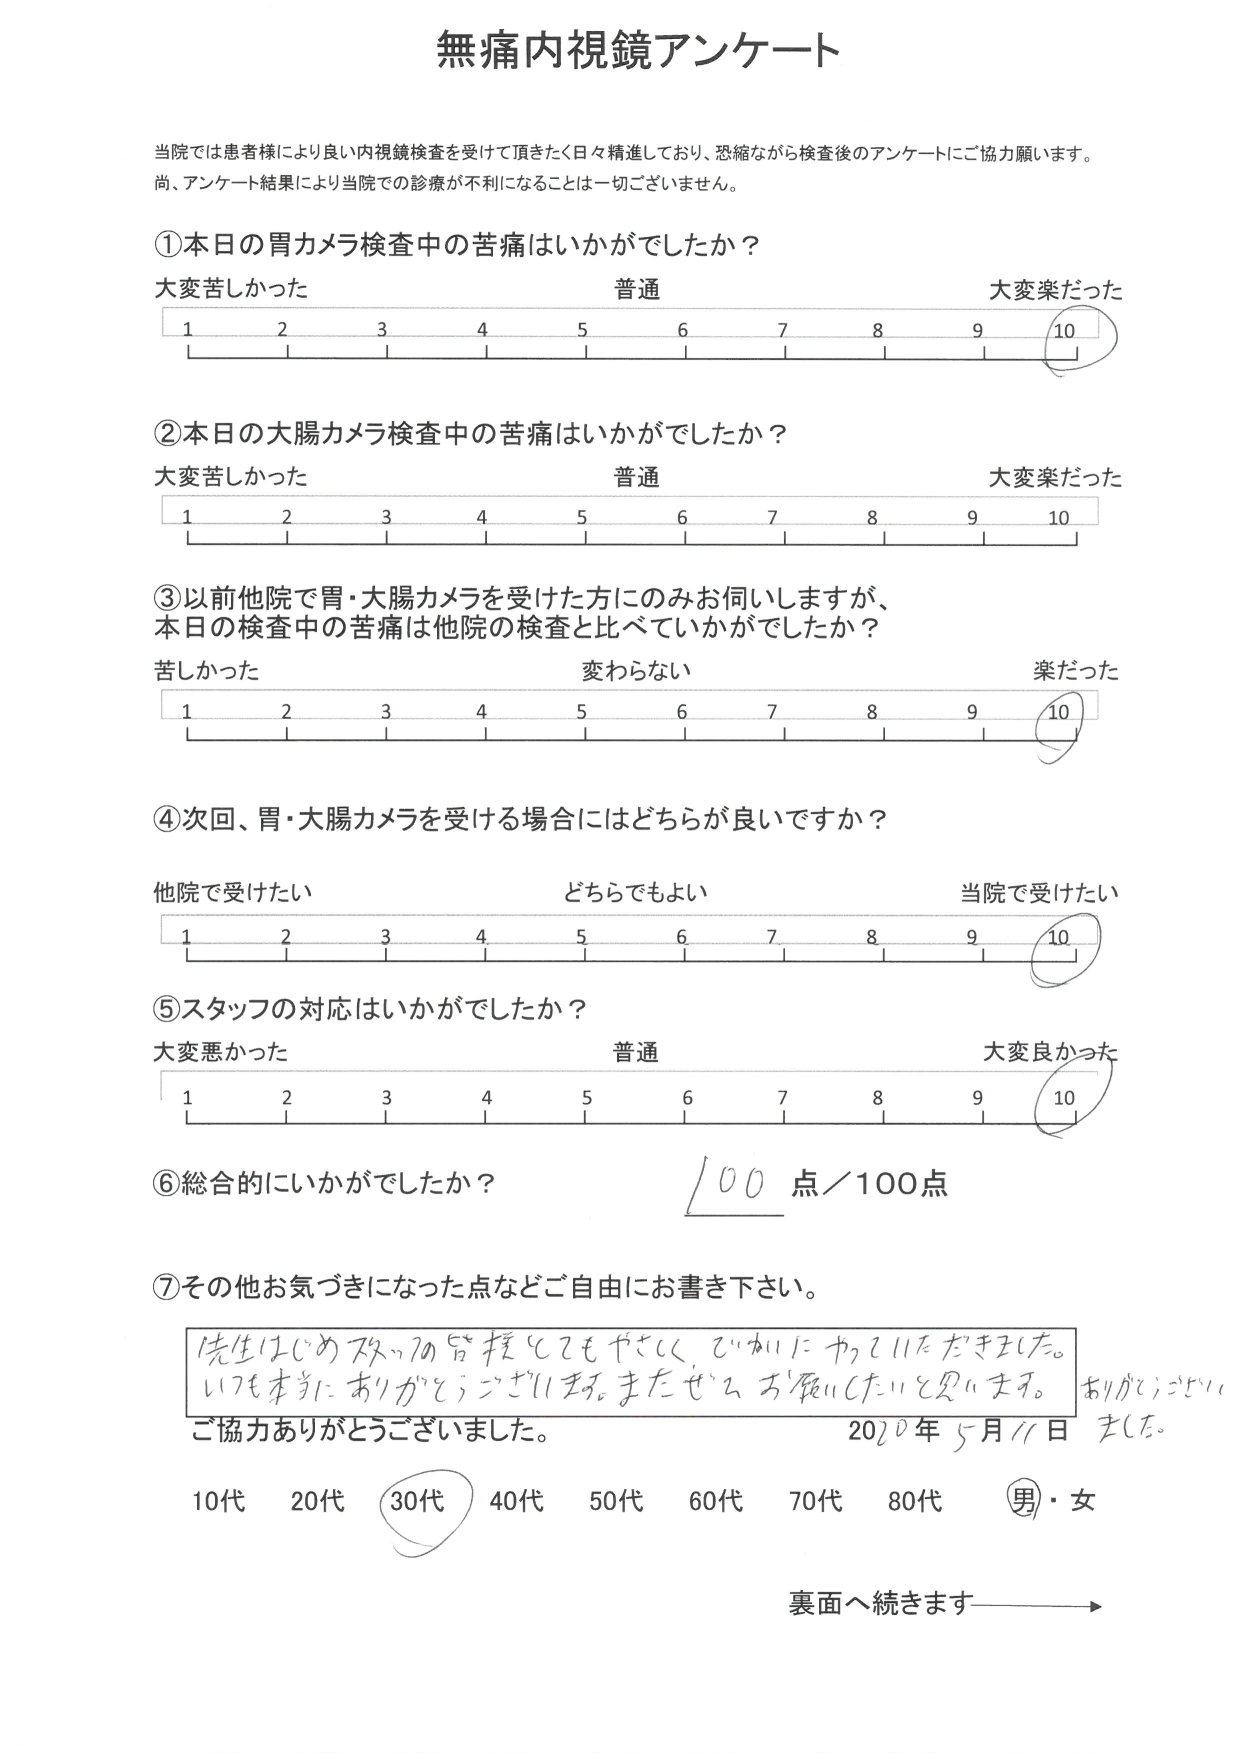 無痛内視鏡アンケート
当院では患者様により良い内視鏡検査を受けて頂きたく日々精進しており、恐縮ながら検査後のアンケートにご協力願います。
尚、アンケート結果により当院での診療が不利になることは一切ございません。
①本日の胃カメラ検査中の苦痛はいかがでしたか？
大変苦しかった 普通 大変楽だった
1 2 3 4 5 6 7 8 9 10
②本日の大腸カメラ検査中の苦痛はいかがでしたか？
大変苦しかった 普通 大変楽だった
1 2 3 4 5 6 7 8 9 10
③以前他院で胃・大腸カメラを受けた方にのみお伺いしますが、
本日の検査中の苦痛は他院の検査と比べていかがでしたか？
苦しかった 変わらない 楽だった
1 2 3 4 5 6 7 8 9 10
④次回、胃・大腸カメラを受ける場合にはどちらが良いですか？
他院で受けたい どちらでもよい 当院で受けたい
1 2 3 4 5 6 7 8 9 10
⑤スタッフの対応はいかがでしたか？
大変悪かった 普通 大変良かった
1 2 3 4 5 6 7 8 9 10
⑥総合的にいかがでしたか？ 100 点／100点
⑦その他お気づきになった点などご自由にお書き下さい。
先生はじめスタッフの皆様とてもやさしく、ていねいにやっていただきました。
いつも本当にありがとうございます。またぜひお願いしたいと思います。 ありがとうござい
ご協力ありがとうございました。 2020年 5月 11日 ました。
10代 20代 30代 40代 50代 60代 70代 80代 男・女
裏面へ続きます